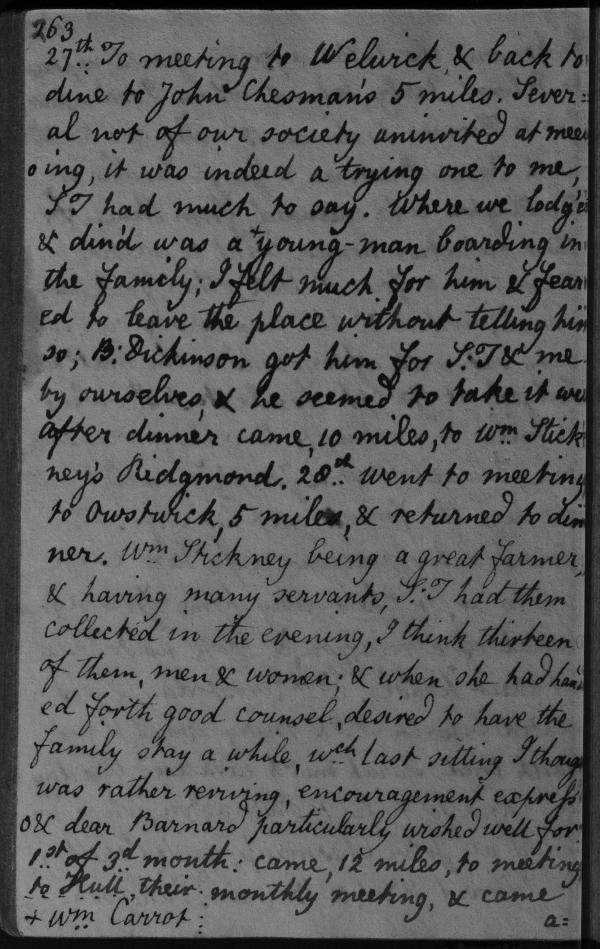 263
27th.. To meeting to Welwick, & back to
dine to John Chesman's 5 miles. Sever=
al not of our society uninvited at mee
o ing, it was indeed a trying one to me,
S T had much to say. Where we lodg'd
& din'd was a + young-man boarding in
the family; I felt much for him & fear
ed to leave the place without telling him
so; B: Dickinson got him for S:T & me
by ourselves, & he seemed to take it we
After dinner came, 10 miles, to Wm Stick
ney's Ridgmond. 28th.. went to meeting
to Owstwick, 5 miles, & returned to din
ner. Wm Stickney being a great farmer,
& having many servants, S:T had them
collected in the evening, I think thirteen
of them, men & women; & when she had hand
ed forth good counsel, desired to have the
family stay a while, wch last sitting I thoug
was rather reviving, encouragement express
o & dear Barnard particularly wished well for
1st.. of 3d month: came, 12 miles, to meeting
to Hull, their monthly meeting, & came
+ Wm Carrot:
a=